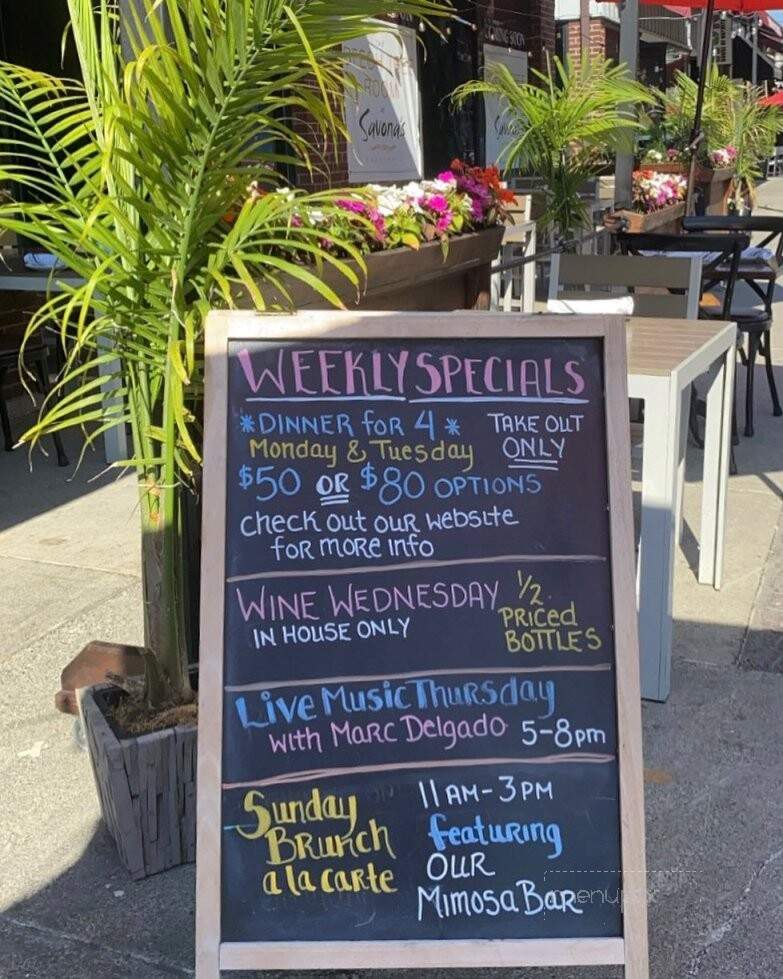 ROOM
Savona's
COMING SOON
WEEKLY SPECIALS
*DINNER FOR 4*
TAKE OUT
ONLY
Monday & Tuesday
$50 OR $80 OPTIONS
Check out our website
for more info
WINE WEDNESDAY
IN HOUSE ONLY
1/2
PRiced
BOTTLES
Live Music Thursday
with Marc Delgado 5-8pm
Sunday
Brunch
a la carte
11AM-3PM
featuring
OUR
Mimosa Bar